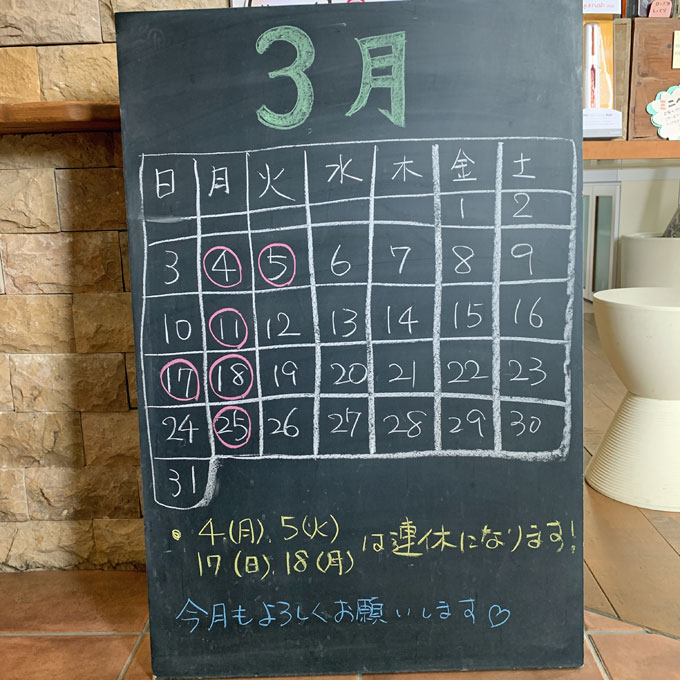 3月
日 月 火 水 木 金 土
1 2
3 4 5 6 7 8 9
10 11 12 13 14 15 16
17 18 19 20 21 22 23
24 25 26 27 28 29 30
31
・4(月)、5(火)
17(日)、18(月)は連休になります!
今月もよろしくお願いします♡